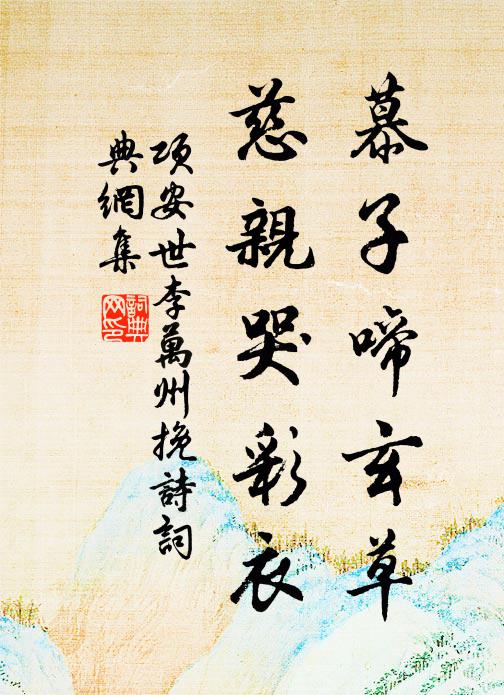 慕子啼玄草
慈親哭彩衣
項安世李萬州挽詩詞
典網集
詞典
网印